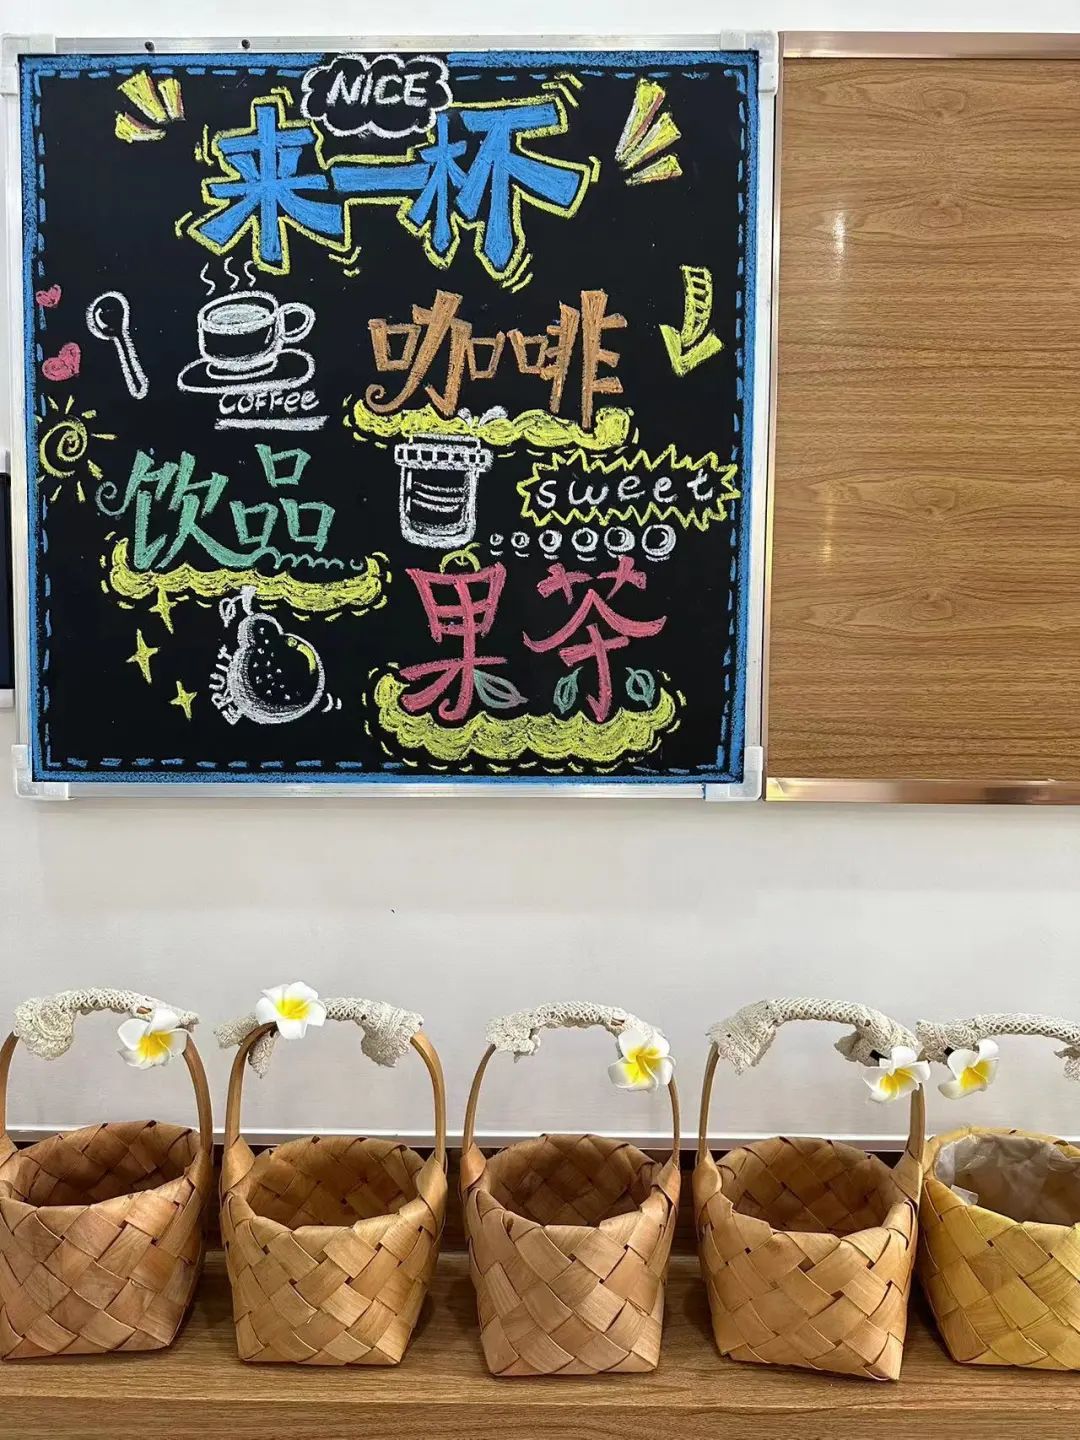 NICE
来一杯
咖啡
COFFEE
sweet
饮品
果茶
FRUIT